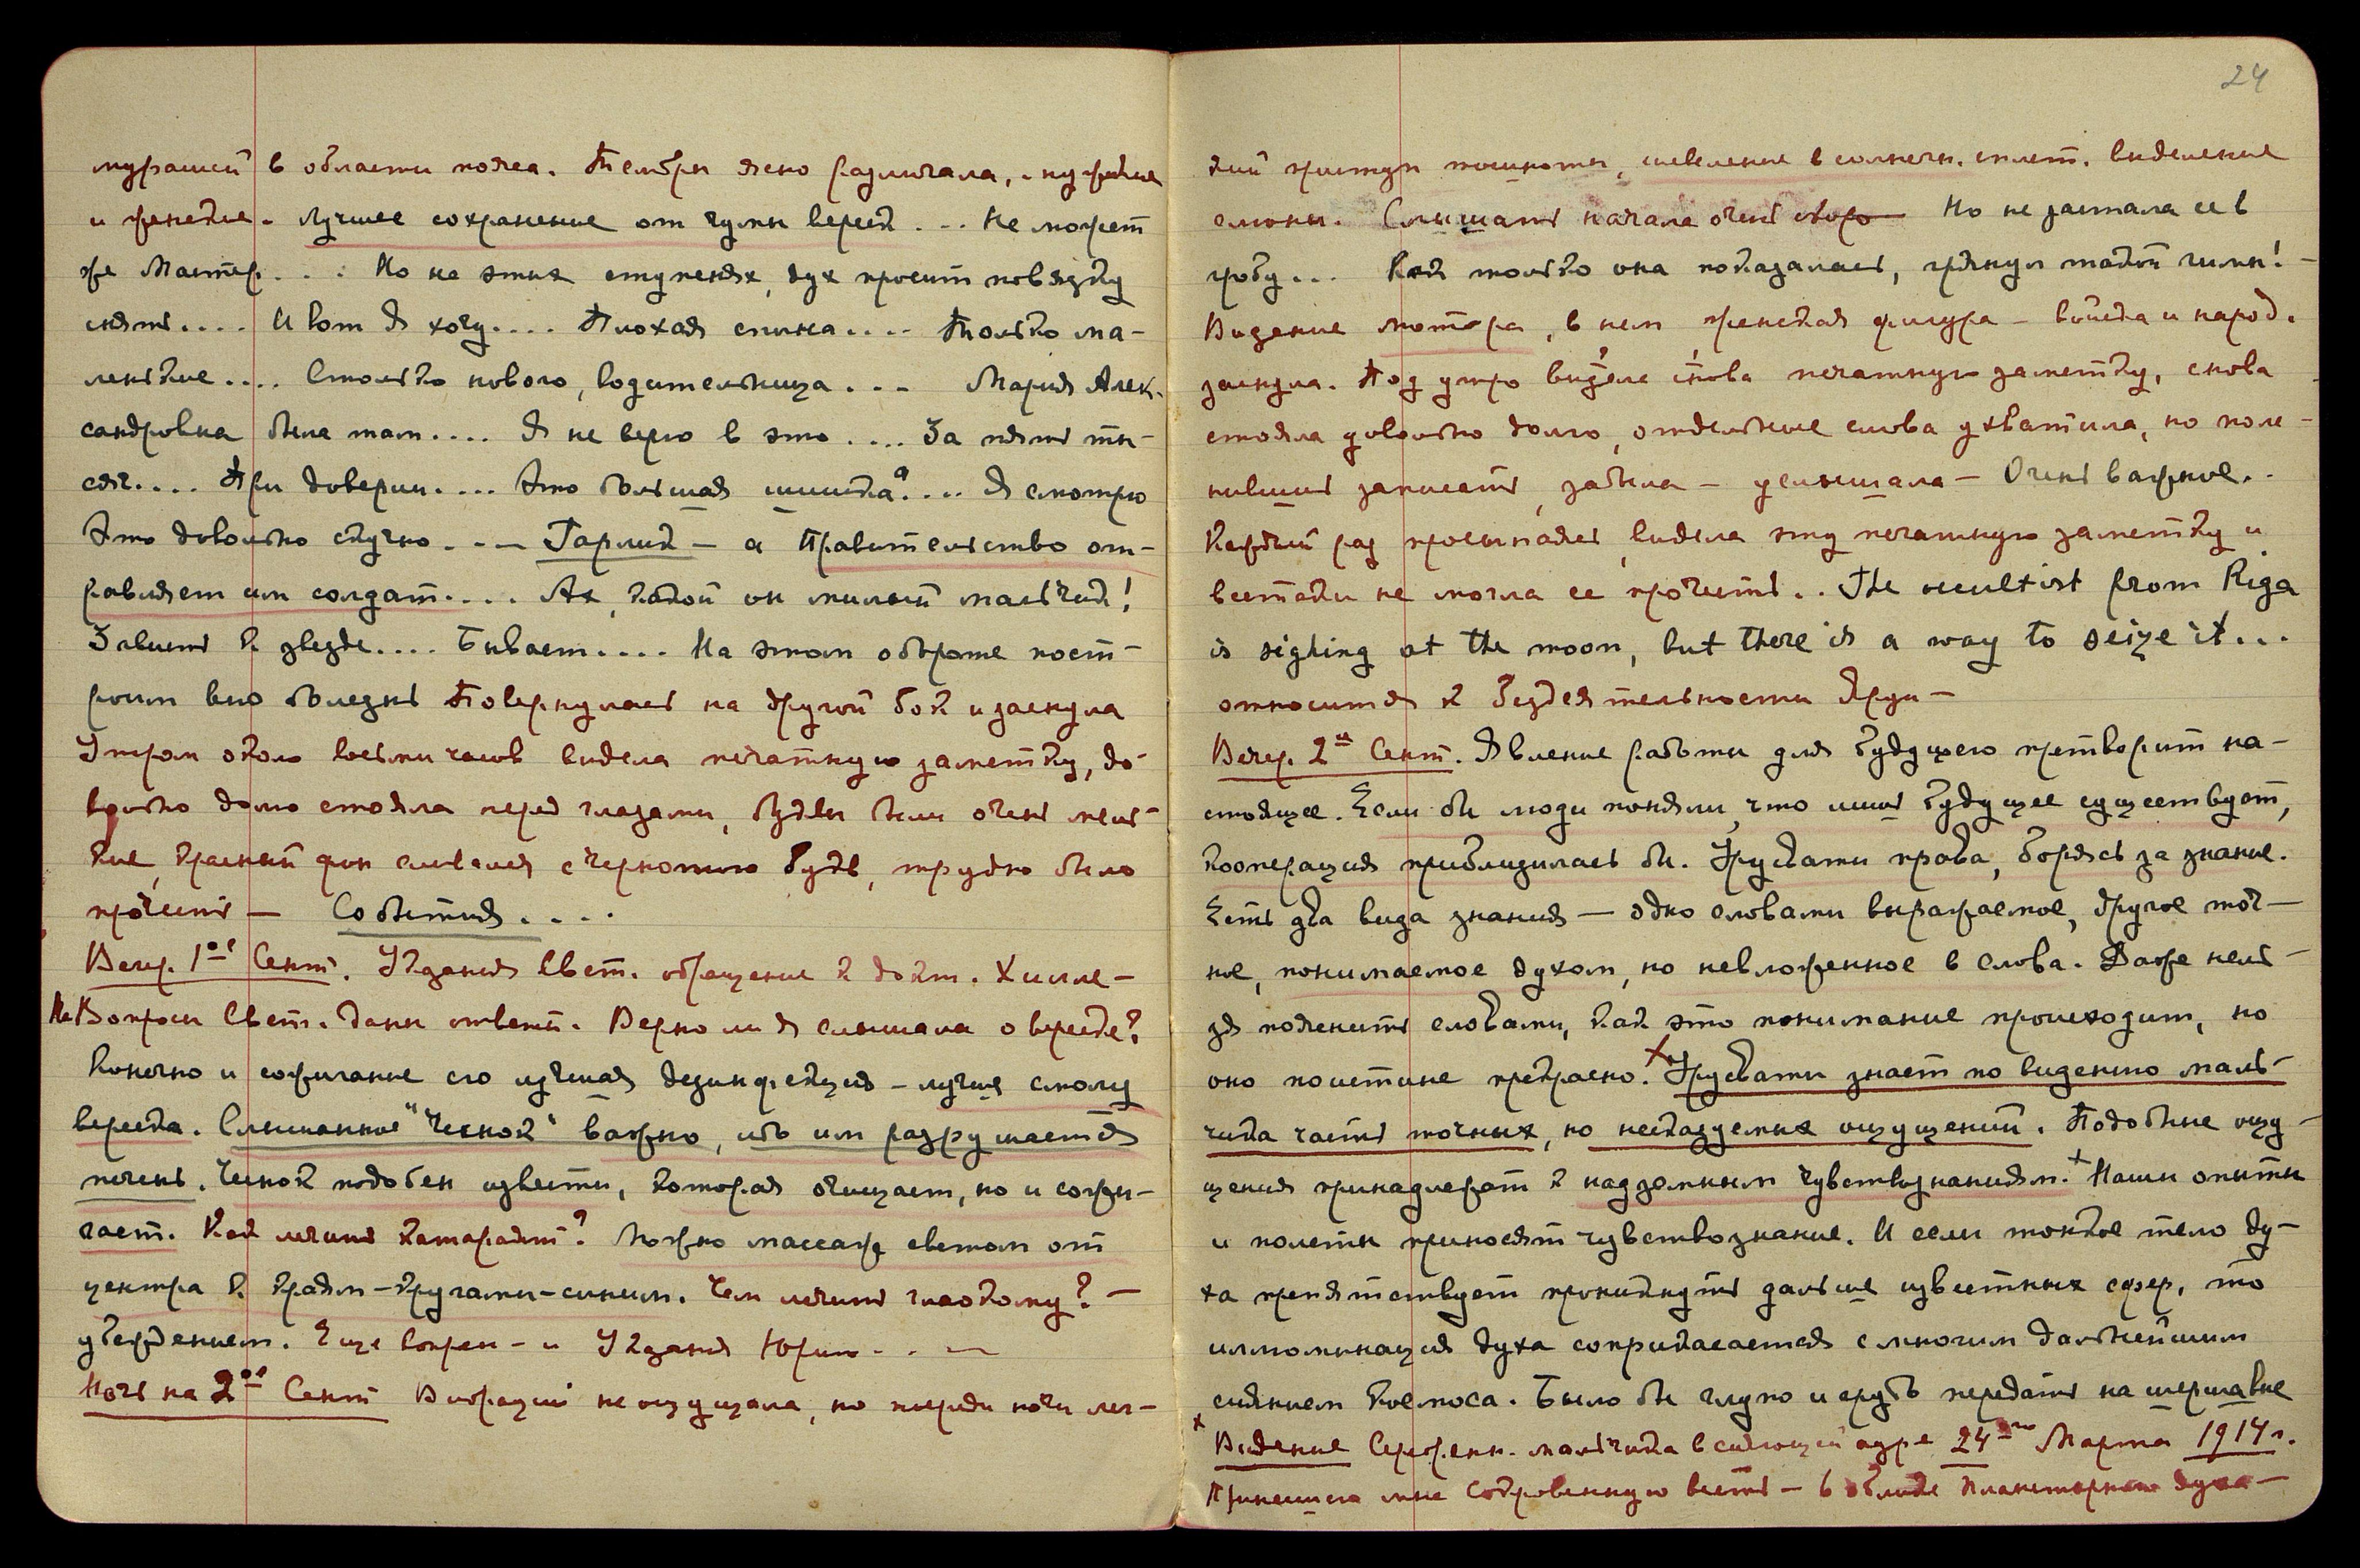 мурашей в области пояса. Тембры ясно различала, мужские
и женские. Лучшее сохранение от чумы вереск ... Не может
же Мастер... Но на этих ступенях, дух просит повязку
снять.... И вот я хочу.... Плохая спина.... Только ма-
ленькие.... Столько нового, водительница... Мария Алек-
сандровна была там.... Я не верю в это.... За пять ты-
сяч.... При доверии.... Это большая шишка?.... Я смотрю
Это довольно скучно. - — Гарлик — а Правительство от-
равляет им солдат.... Ах, какой он милый мальчик!
Зависть к звезде.... Бывает.... На этом обороте постро-
им всю болезнь Повернулась на другой бок и заснула
Утром около восьми часов видела печатную заметку, до-
вольно долго стояла перед глазами, буквы были очень мел-
кие, красный фон сливался с чернотою букв, трудно было
прочесть — События....
Вечер. 1ое Сент. Указания Свет. обращение к докт. Хилле-
На Вопросы Свет. даны ответы. Верно ли я слышала о вереске?
Конечно и сожигание его лучшая дезинфекция – лучше смолу
вереска. Слышанное "Чеснок" важно, ибо им разрушается
печень. Чеснок подобен извести, которая очищает, но и сожи-
гает. Как лечить катаракт? Можно массаж светом от
центра к краям – кругами – синим. Чем лечить глаокому? —
убеждением. Еще вопрос – и Указания Юрию. - —
Ночь на 2ое Сент Вибраций не ощущала, но посреди ночи лег-
24
кий приступ тошноты, шевеление в солнечн. сплет. выделение
слюны. Слышать начала очень скоро Но не застала ее в
гробу... Как только она показалась, грянул такой гимн! -
Видение мотора, в нем женская фигура – войска и народ.
заснула. Под утро видела снова печатную заметку, снова
стояла довольно долго, отдельные слова ухватила, но поле-
нившись записать, забыла – услышала – Очень важное..
Каждый раз просыпаясь, видела эту печатную заметку и
всетаки не могла ее прочесть.. The occultist from Riga
is sighing at the moon, but there is a way to seize it...
относится к бездеятельности Друзи —
Вечер. 2го Сент. Явление работы для будущего претворит на-
стоящее. Если бы люди поняли, что лишь будущее существует,
кооперация приблизилась бы. Урусвати права, борясь за знание.
Есть два вида знания — одно словами выражаемое, другое точ-
ное, понимаемое духом, но невложенное в слова. Даже нель-
зя пояснить словами, как это понимание происходит, но
оно поистине прекрасно. х Урусвати знает по видению маль-
чика часть точных, но несказуемых ощущений. Подобные ощу-
щения принадлежат к надземным чувствознаниям. х Наши опыты
и полеты приносят чувствознание. И если тонкое тело ду-
ха препятствует проникнуть дальше известных сфер, то
иллюминация духа соприкасается с многим дальнейшим
сиянием Космоса. Было бы глупо и грубо передать на шершавые
х Видение Сергженн. мальчика в сияющей ауре 24го Марта 1914 г.
Принесшего мне Сокровенную весть – в облике планетарного духа —